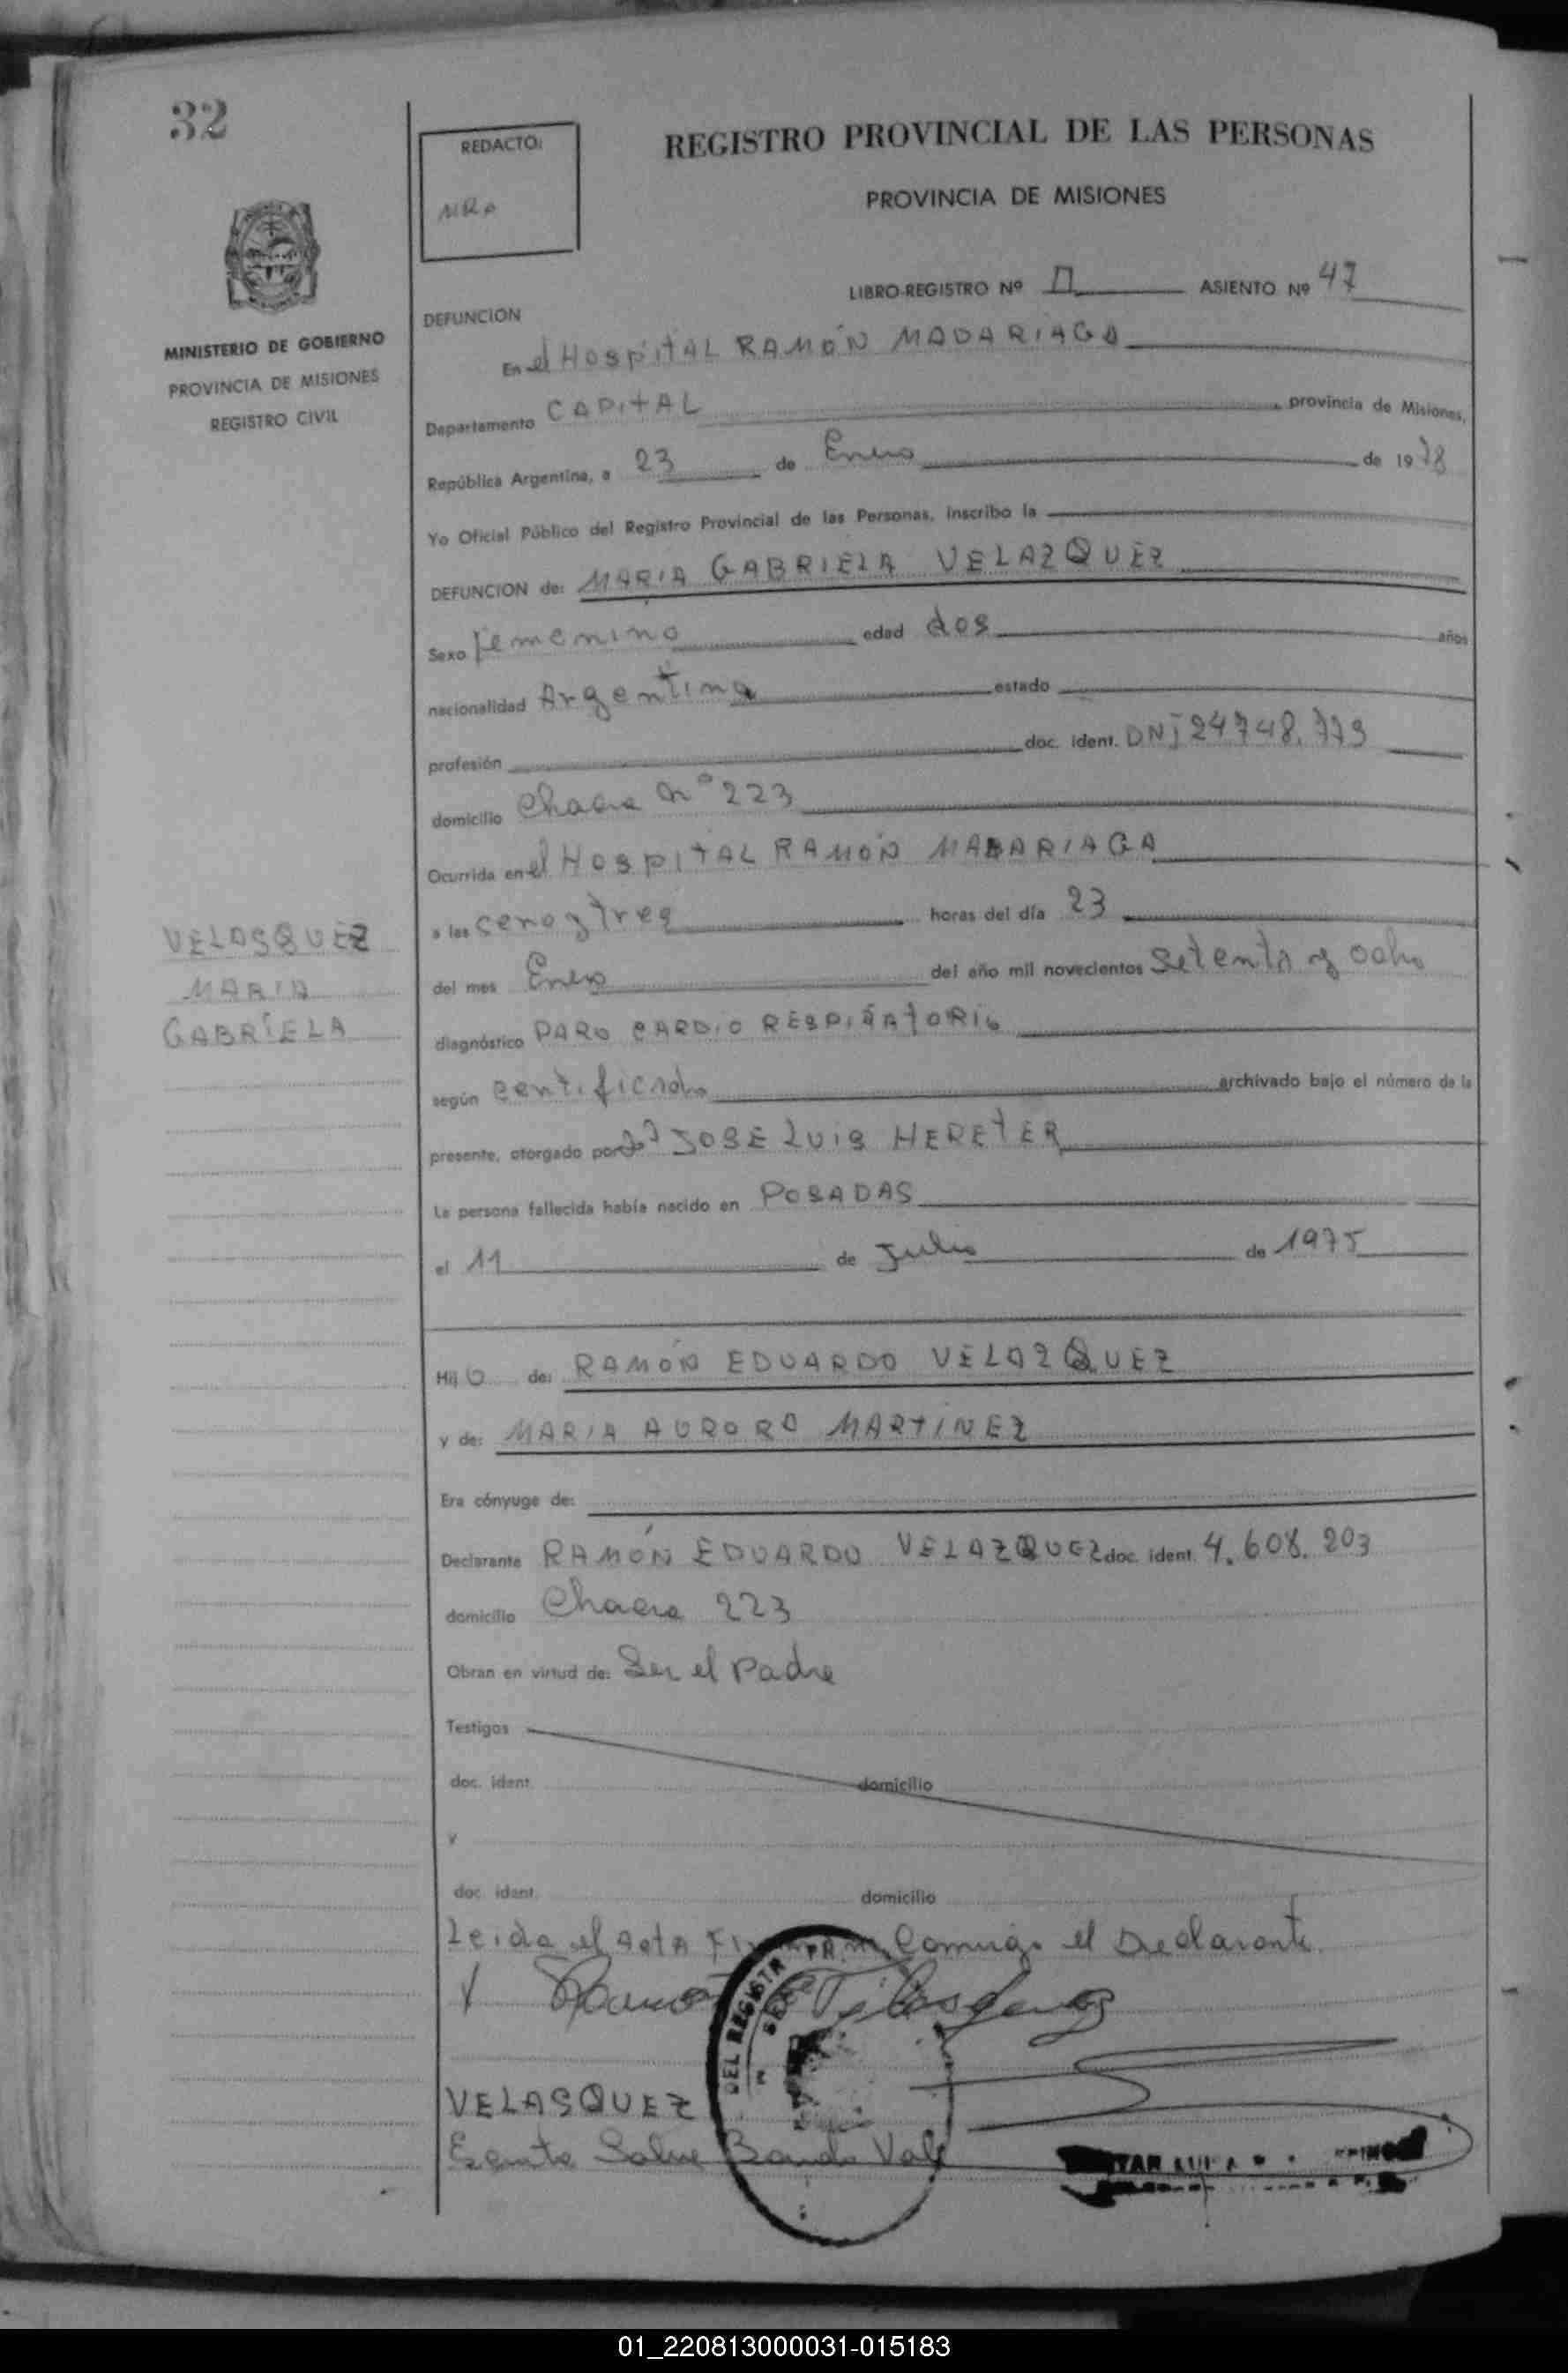 32
REDACTO:
MRA
REGISTRO PROVINCIAL DE LAS PERSONAS
PROVINCIA DE MISIONES
LIBRO-REGISTRO Nº II ASIENTO Nº 47
MINISTERIO DE GOBIERNO
PROVINCIA DE MISIONES
REGISTRO CIVIL
DEFUNCION
En el HOSPITAL RAMÓN MADARIAGA
Departamento CAPITAL, provincia de Misiones,
República Argentina, a 23 de Enero de 1978
Yo Oficial Público del Registro Provincial de las Personas, inscribo la
DEFUNCION de: MARIA GABRIELA VELAZQUEZ
Sexo femenino edad dos años
nacionalidad Argentina estado
profesión doc. ident. DNI 24748.773
domicilio Chacra Nº 223
Ocurrida en el HOSPITAL RAMÓN MADARIAGA
a las cero y tres horas del día 23
del mes Enero del año mil novecientos setenta y ocho
diagnóstico PARO CARDIO RESPIRATORIO
según certificado archivado bajo el número de la
presente, otorgado por JOSE LUIS HERETER
La persona fallecida había nacido en POSADAS
el 11 de Julio de 1975
VELASQUEZ
MARIA
GABRIELA
Hij o de: RAMÓN EDUARDO VELAZQUEZ
y de: MARIA AURORA MARTINEZ
Era cónyuge de:
Declarante RAMÓN EDUARDO VELAZQUEZ doc. ident. 4.608.203
domicilio Chacra 223
Obran en virtud de: Ser el Padre
Testigos
doc. ident. domicilio
y
doc. ident. domicilio
Leida el acta Firma Conmigo el Declarante
DEL REGISTR PR
VELASQUEZ
Vale
01_220813000031-015183